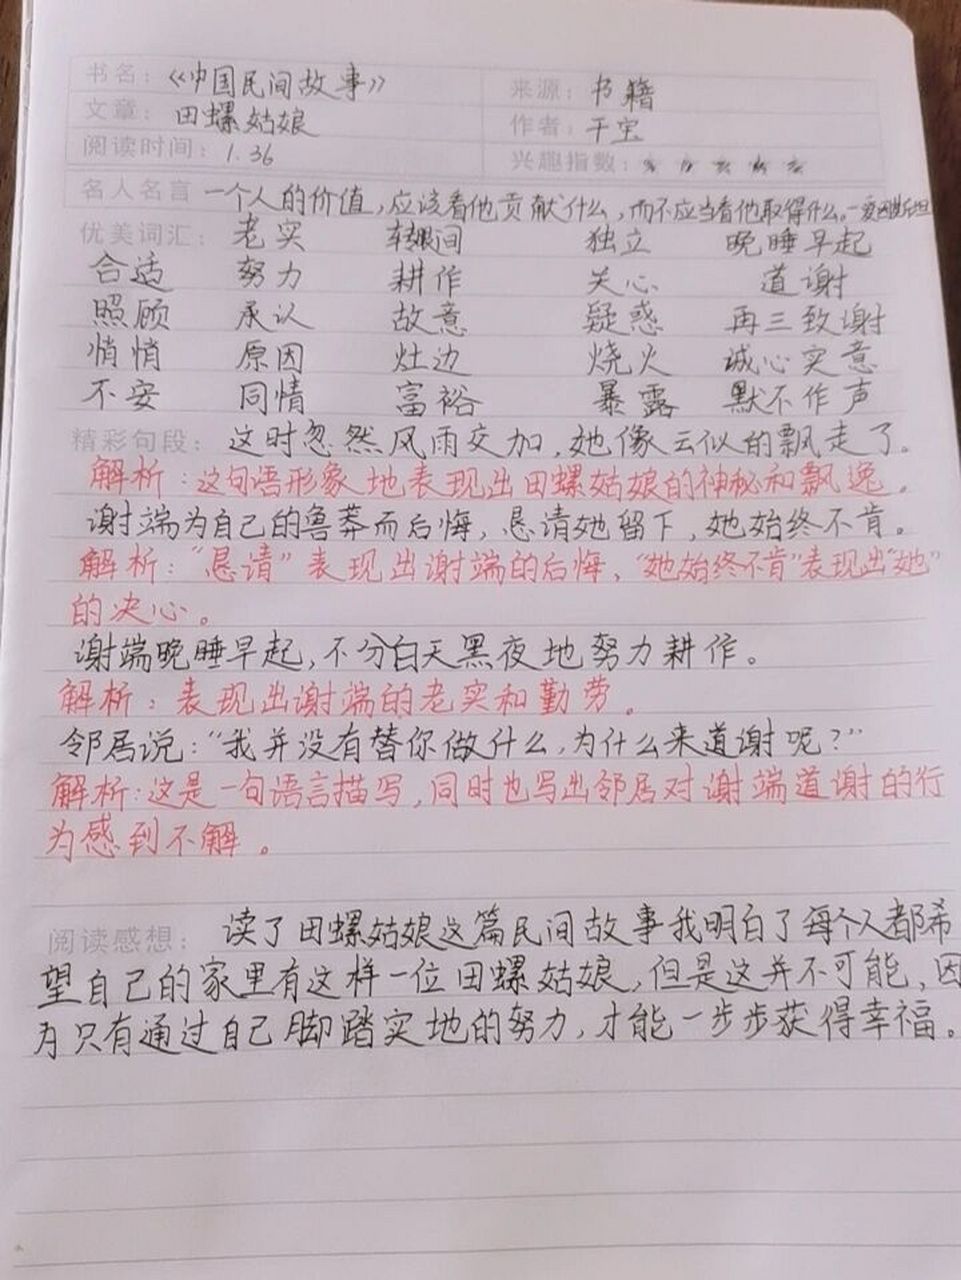 书名：《中国民间故事》 来源：书籍
文章：田螺姑娘 作者：干宝
阅读时间：1.36 兴趣指数：
名人名言 一个人的价值，应该看他贡献什么，而不应当看他取得什么。—爱因斯坦
优美词汇：老实 转眼间 独立 晚睡早起
合适 努力 耕作 关心 道谢
照顾 承认 故意 疑惑 再三致谢
悄悄 原因 灶边 烧火 诚心实意
不安 同情 富裕 暴露 默不作声
精彩句段：这时忽然风雨交加，她像云似的飘走了。
解析：这句语形象地表现出田螺姑娘的神秘和飘逸。
谢端为自己的鲁莽而后悔，恳请她留下，她始终不肯。
解析：“恳请”表现出谢端的后悔，“她始终不肯”表现出“她”
的决心。
谢端晚睡早起，不分白天黑夜地努力耕作。
解析：表现出谢端的老实和勤劳。
邻居说：“我并没有替你做什么，为什么来道谢呢？”
解析：这是一句语言描写，同时也写出邻居对谢端道谢的行
为感到不解。
阅读感想：读了田螺姑娘这篇民间故事我明白了每个人都希
望自己的家里有这样一位田螺姑娘，但是这并不可能，因
为只有通过自己脚踏实地的努力，才能一步步获得幸福。